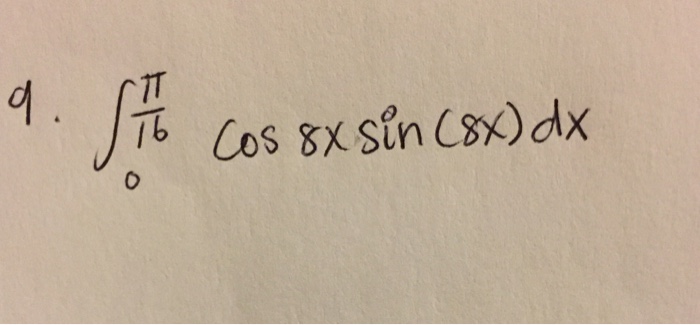 9. ∫₀^(π/16) cos 8x sin (8x) dx